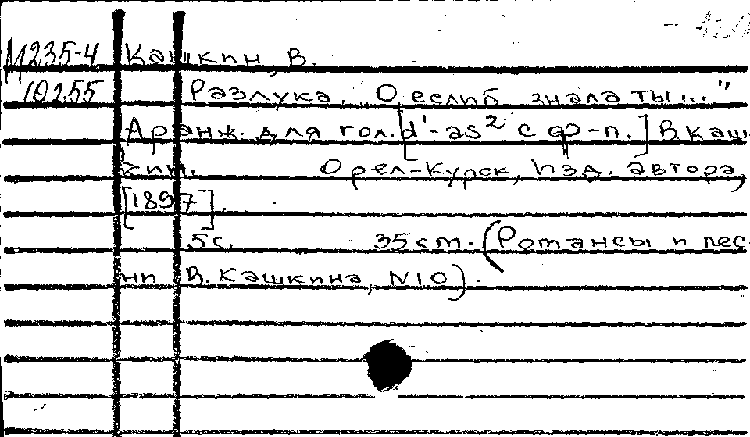 М235-4 Кашкин, В.
10255 Разлука. „О еслиб знала ты..."
Аранж. для гол. [d'-as² с ф-п.] В. Каш
кин. Орел-Курск, Изд. автора,
[1897].
5 с. 35 см. (Романсы и пес
ни В. Кашкина, N10).